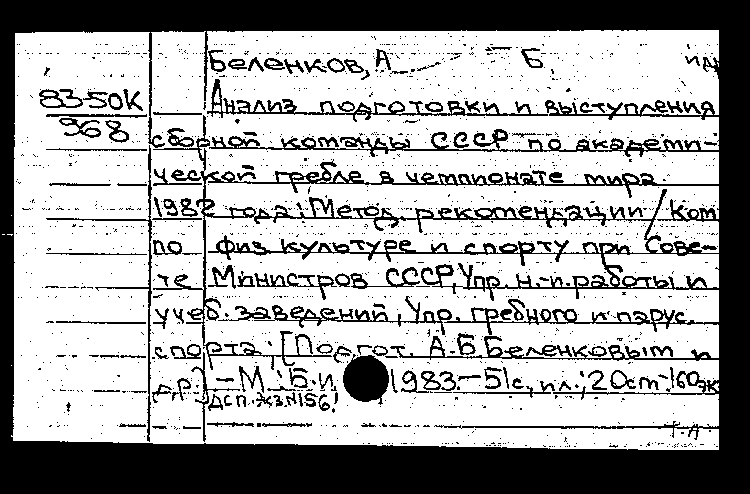 Беленков, А Б и др
83-50К
968
Анализ подготовки и выступления
сборной команды СССР по академи-
ческой гребле в чемпионате мира
1982 года: Метод. рекомендации / Ком
по физ культуре и спорту при Сове-
те Министров СССР, Упр. н.-и. работы и
учеб. заведений, Упр. гребного и парус.
спорта; [Подгот. А.Б. Беленковым и
др.] – М.: Б.и 1983. – 51с, ил.; 20см 160 эк
ДСП. экз. N156!
Т-А